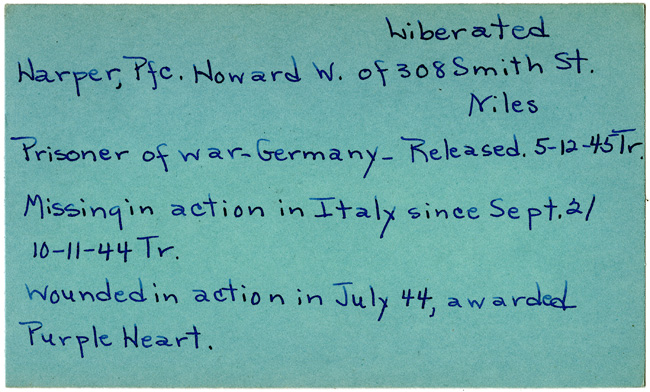 Liberated
Harper, Pfc. Howard W. of 308 Smith St.
Niles
Prisoner of war - Germany - Released. 5-12-45 Tr.
Missing in action in Italy since Sept. 21
10-11-44 Tr.
Wounded in action in July 44, awarded
Purple Heart.